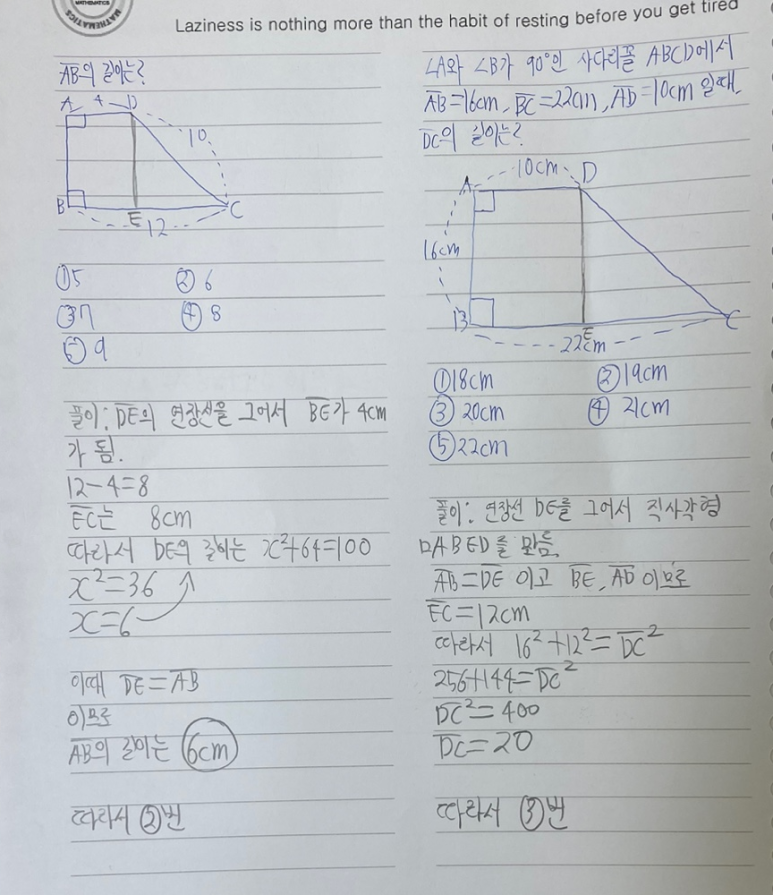 MATHEMATICS
Laziness is nothing more than the habit of resting before you get tired
AB의 길이는?
A 4 D
10
B E C
12
①5 ②6
③7 ④8
⑤9
풀이: DE의 연장선을 그어서 BE가 4cm
가 됨.
12-4=8
EC는 8cm
따라서 DE의 길이는 x²+64=100
x²=36
x=6
이때 DE=AB
이므로
AB의 길이는 6cm
따라서 ②번
∠A와 ∠B가 90°인 사다리꼴 ABCD에서
AB=16cm, BC=22cm, AD=10cm 일때
DC의 길이는?
A 10cm D
16cm
B E C
22cm
①18cm ②19cm
③20cm ④21cm
⑤22cm
풀이: 연장선 DE를 그어서 직사각형
□ABED를 만듦.
AB=DE 이고 BE, AD 이므로
EC=12cm
따라서 16²+12²=DC²
256+144=DC²
DC²=400
DC=20
따라서 ③번